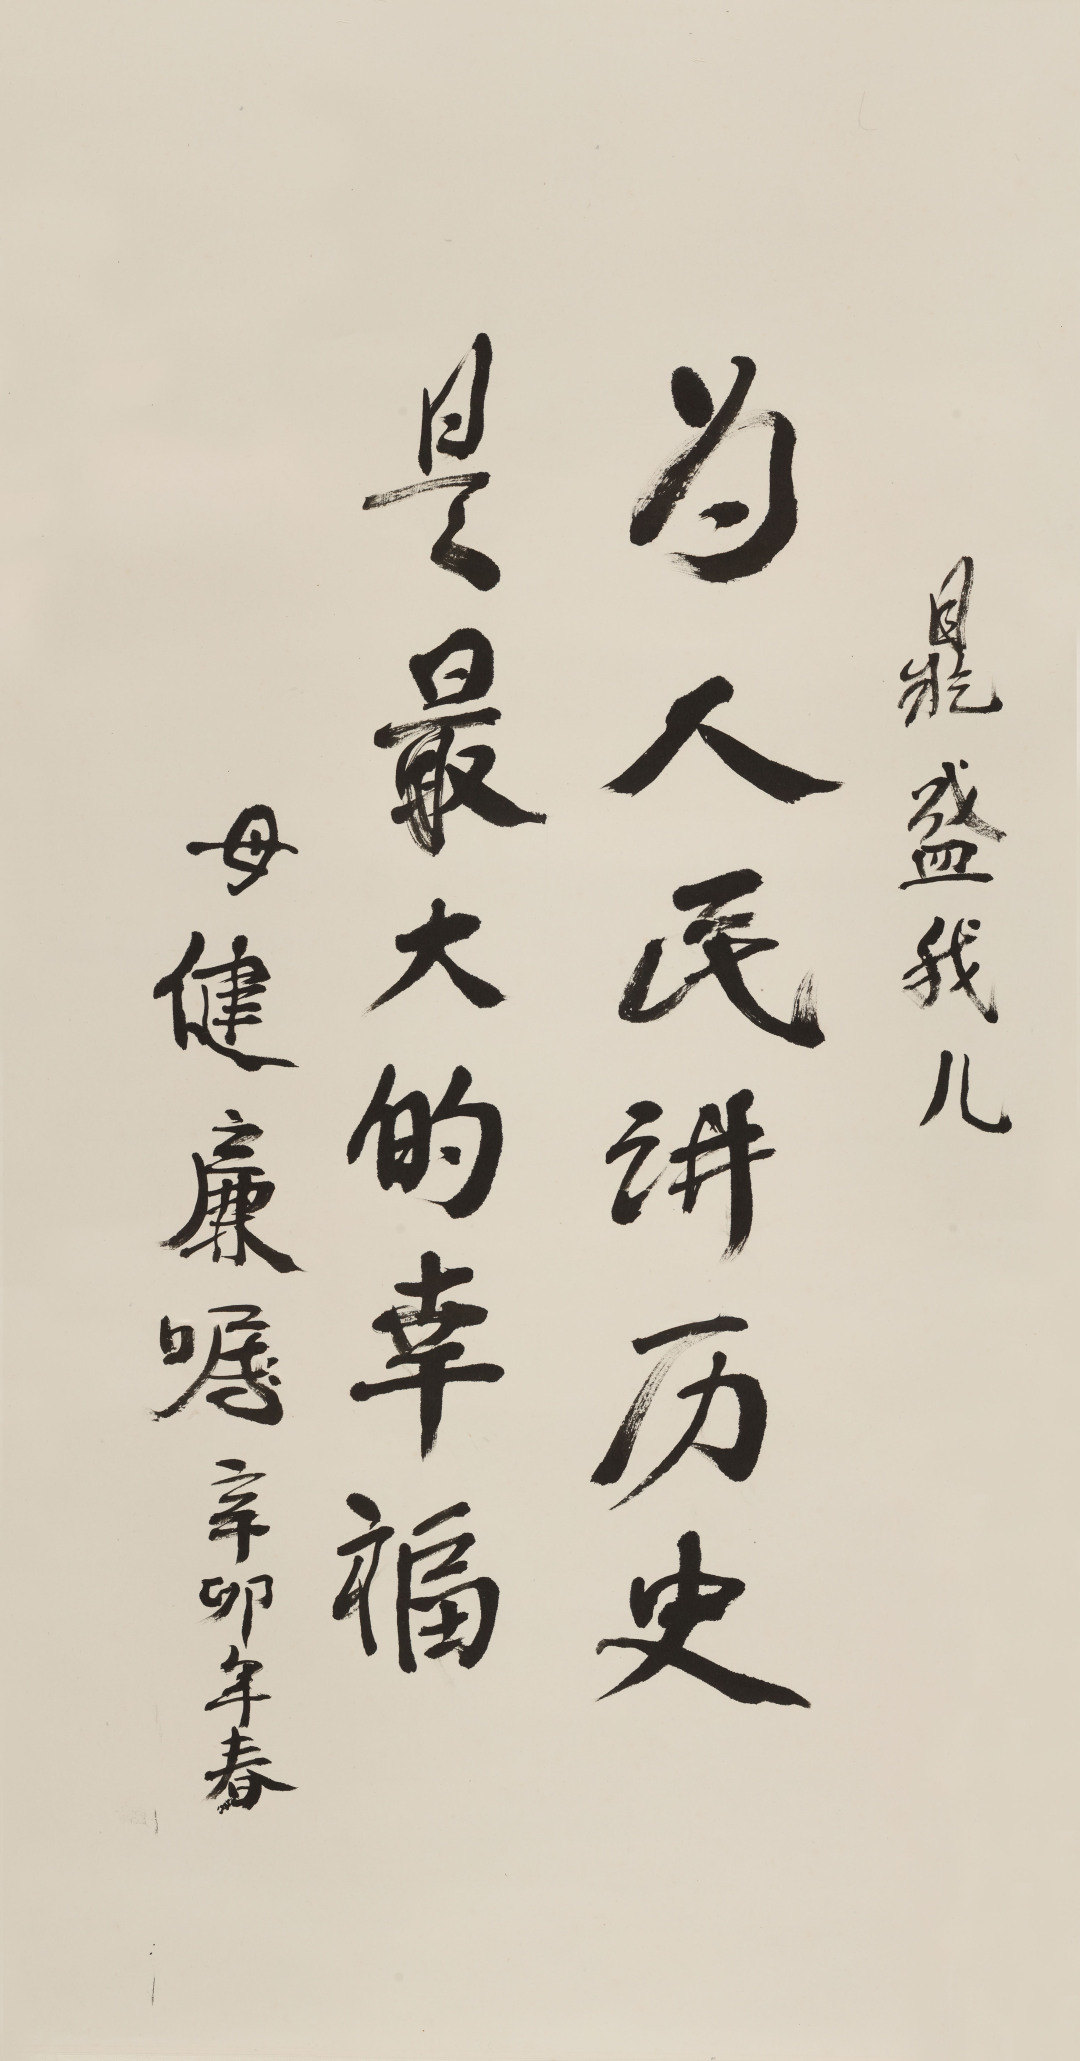 鼂盛我儿
为人民讲历史
是最大的幸福
母健廉嘱 辛卯年春